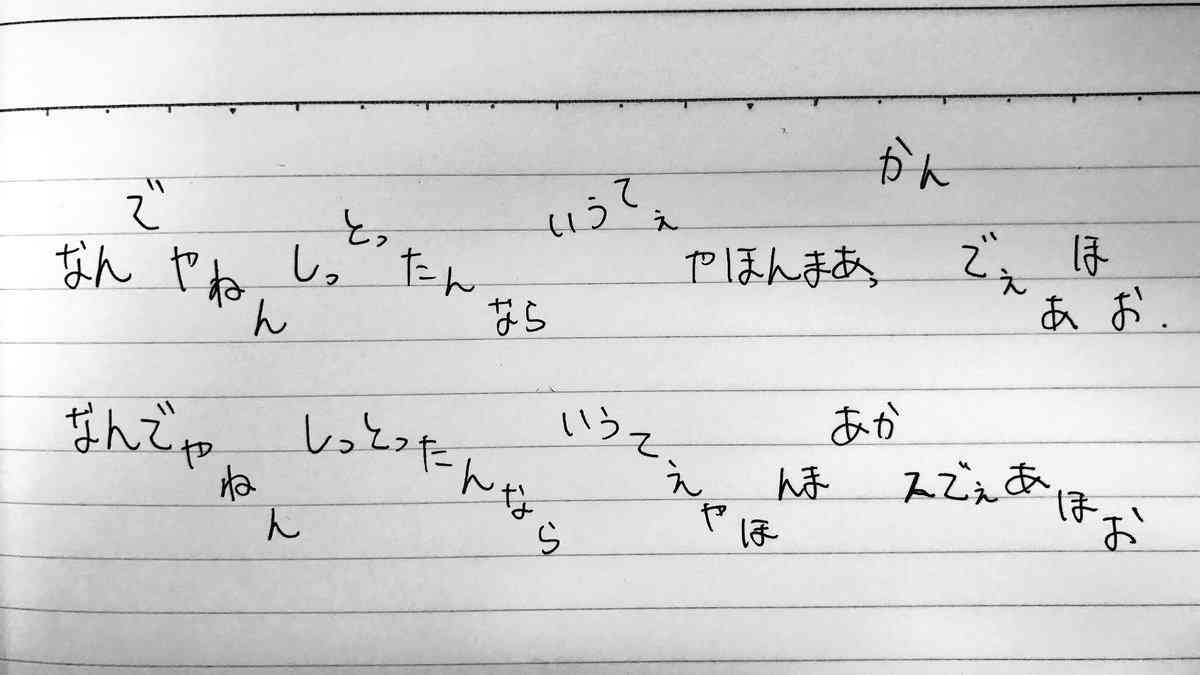 なんでやねん しっとったんなら いうてぇ やほんまあ、かん でぇ あほお.
なんでやねん しっとったんなら いうてぇやほんま あかんでぇあほお